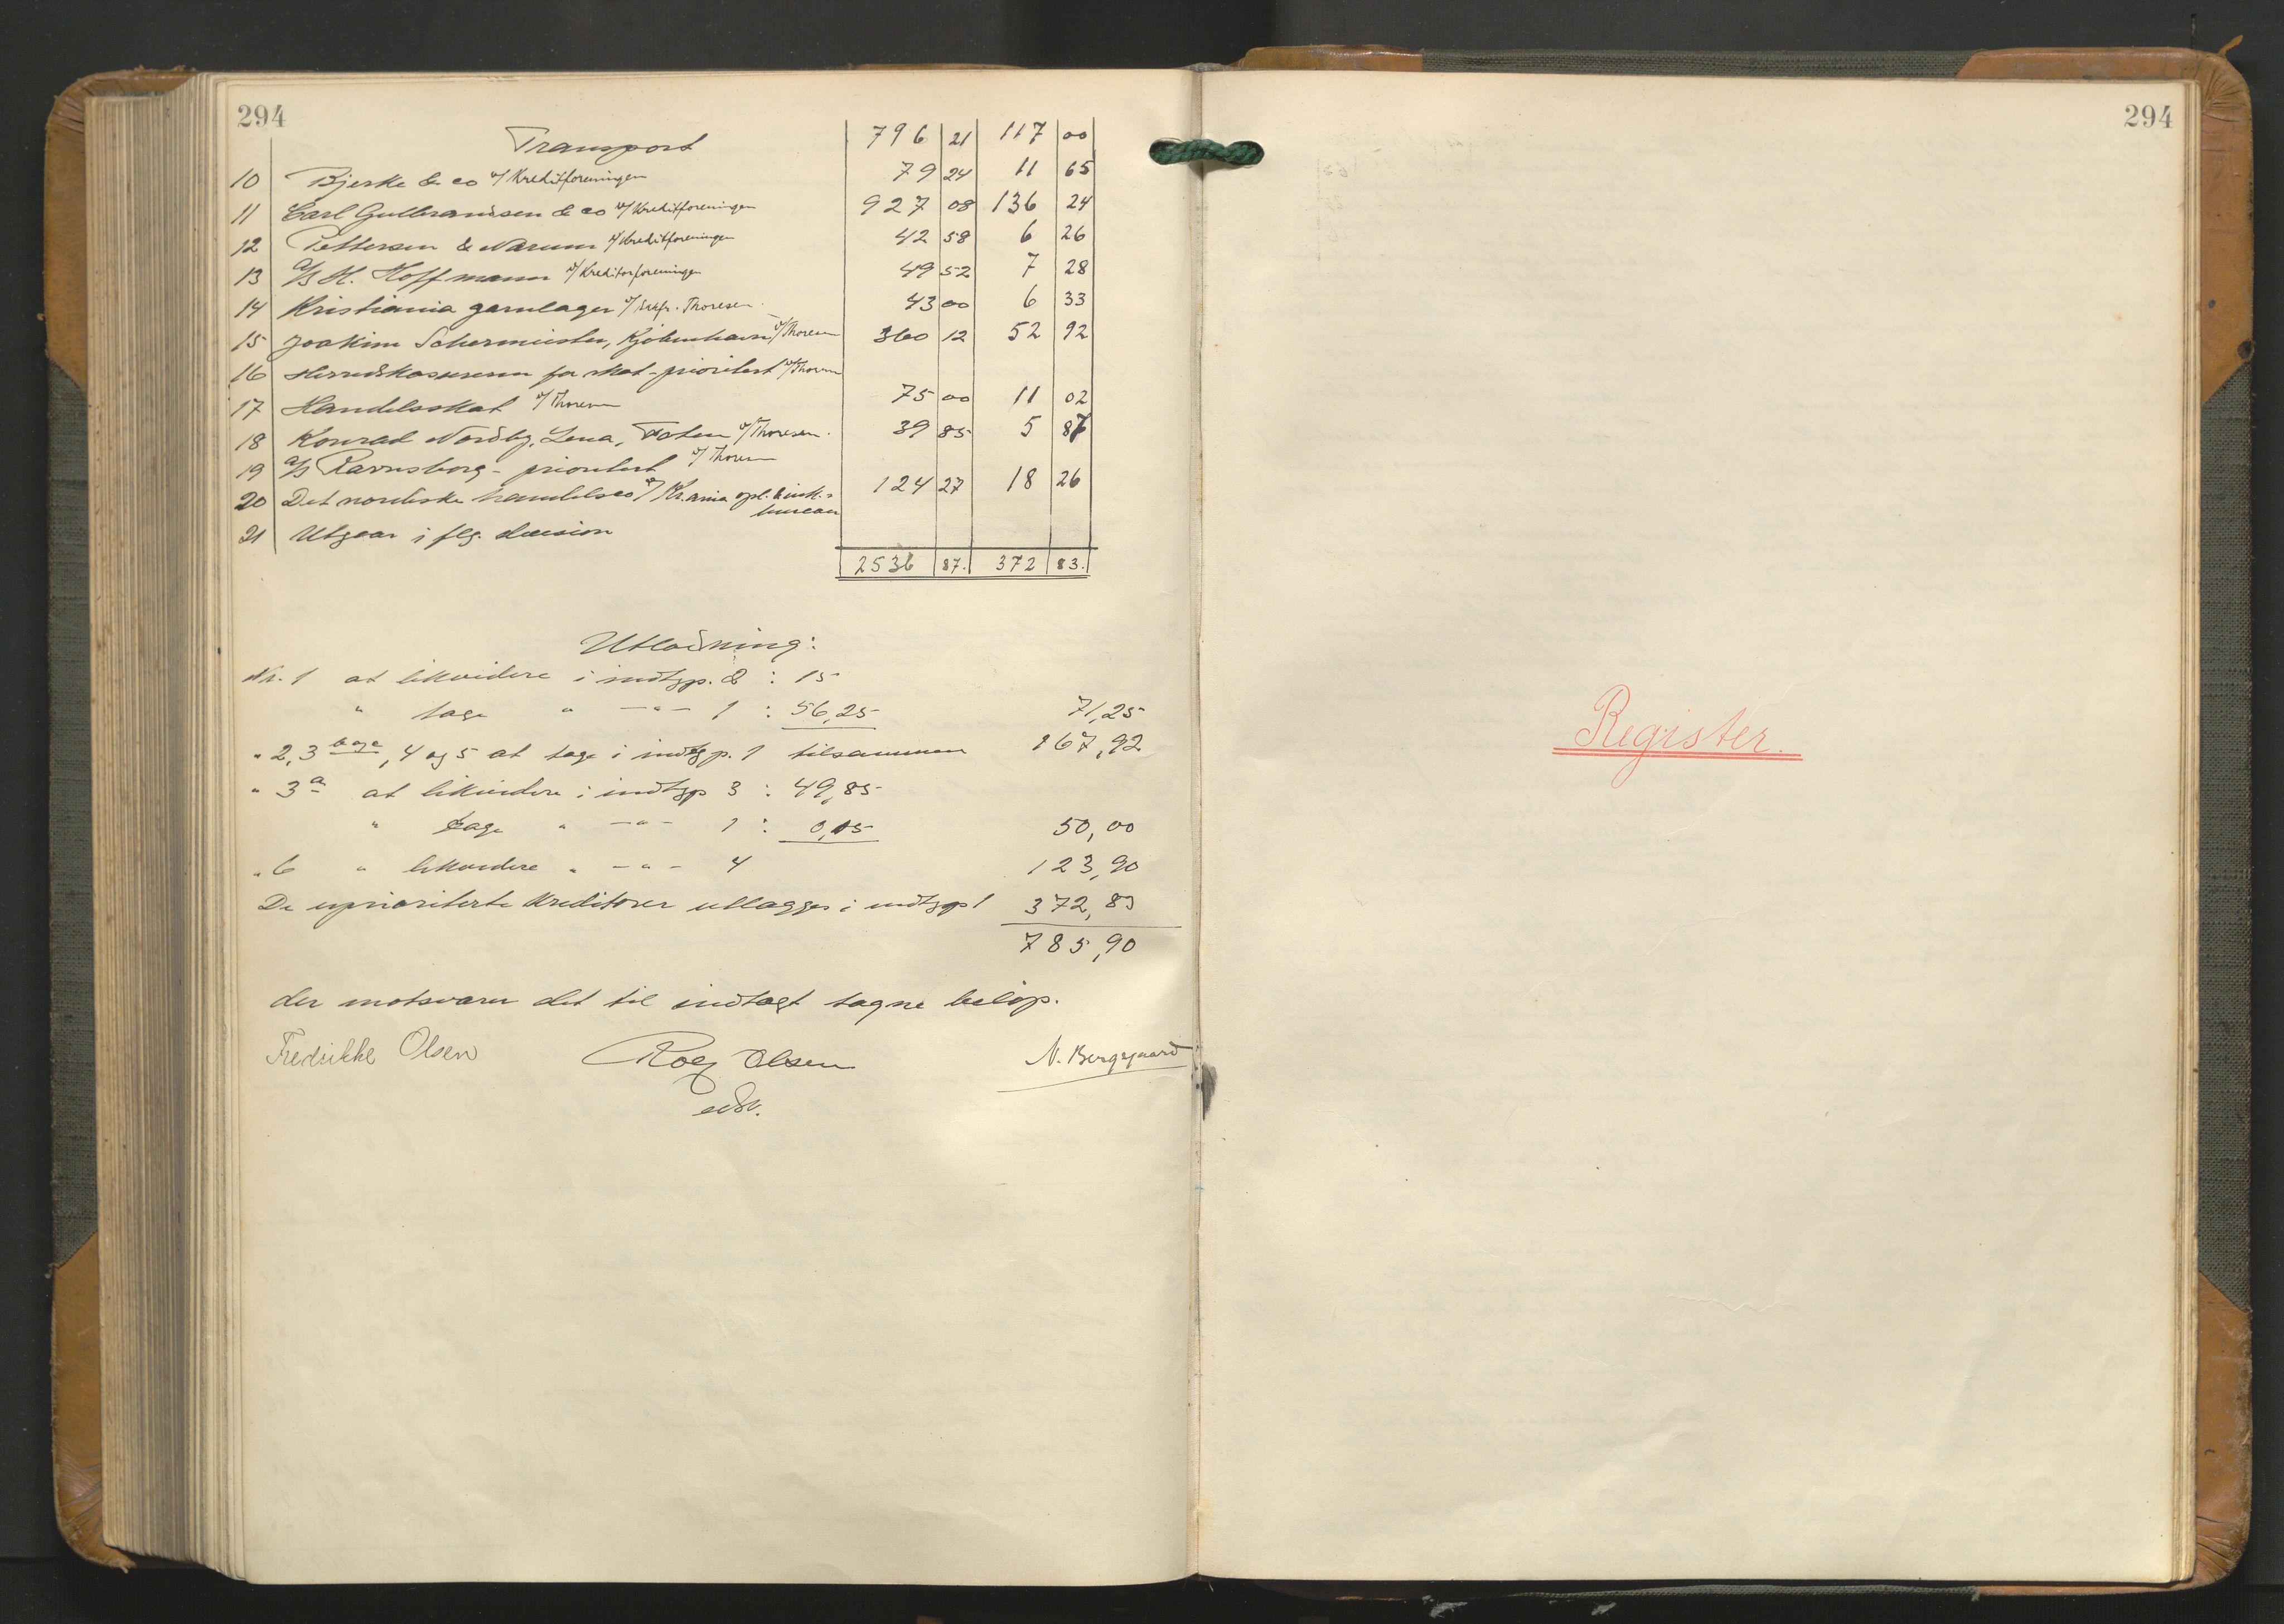 294
Transport 796 21 117 00
10 Bjerke & co v/ Kreditforeningen 79 24 11 65
11 Carl Gulbrandsen & co v/ Kreditforeningen 927 08 136 24
12 Pettersen & Narum v/ Kreditforeningen 42 58 6 26
13 A/S H. Hoffmann v/ Kreditorforeningen 49 52 7 28
14 Kristiania garnlager v/ Thoresen 43 00 6 33
15 Joakim Kjøbenhavn v/ Thoresen 360 12 52 92
16 Herredskassereren for skat - prioritert v/ Thoresen
17 Handelsskat v/ Thoresen 75 00 11 02
18 Konrad Nordby, Lena, Toten v/ Thoresen. 39 85 5 86
19 A/S Ravnsborg - prioritert v/ Thoresen
20 Det nordiske handelsco v/ Kr.ania opl. & ink.- 124 27 18 26
bureau
21 Utgaar i flg. decision
2536 87. 372 83.
Utlodning:
Nr. 1 at likvidere i indtgp. 2 : 15
" tage " -"- 1 : 56,25 71,25
" 2, 3 b og c, 4 og 5 at tage i indtgp. 1 tilsammen 167,92
" 3 a at likvidere i indtgp 3 : 49,85
" tage " -"- 1 : 0,15 50,00
" 6 " likvidere " -"- 4 123,90
De uprioriterte kreditorer utlægges i indtgp 1 372,83
785,90
der motsvarer det til indtægt tagne beløp.
Fredrikke Olsen Rolf Olsen N. Berggaard
edv.
294
Register.